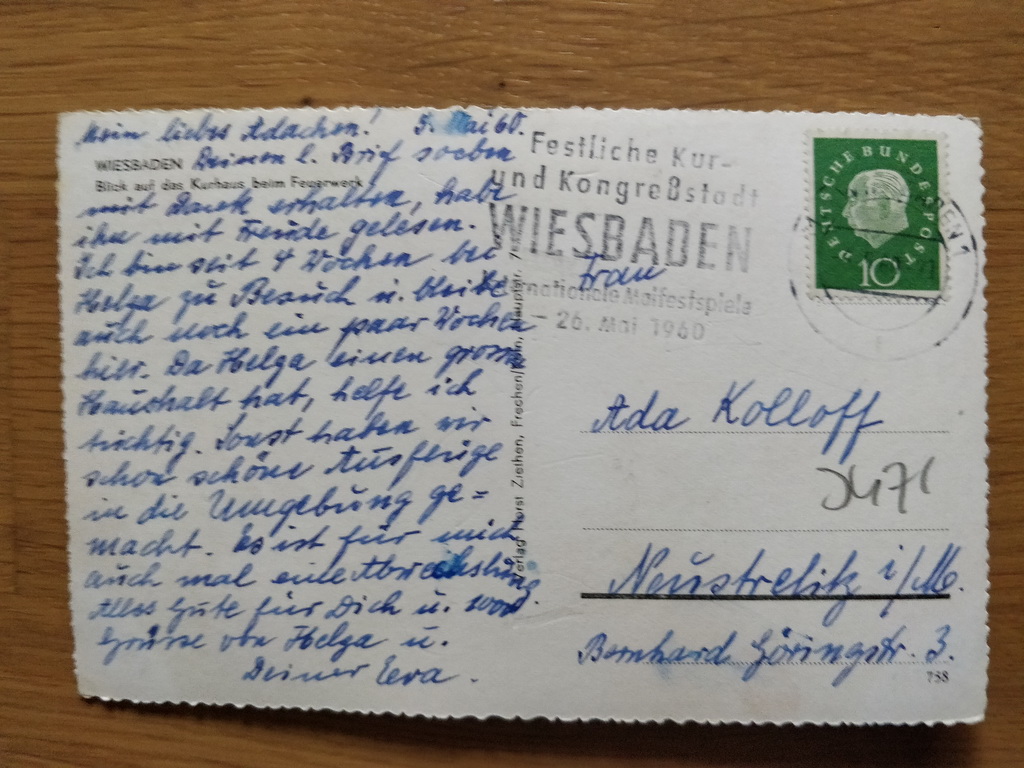 Mein liebes Adachen! 5. Mai 60.
WIESBADEN
Blick auf das Kurhaus beim Feuerwerk
Deinen l. Brief soeben
mit Dank erhalten, habe
ihn mit Freude gelesen.
Ich bin seit 4 Wochen bei
Helga zu Besuch u. bleibe
auch noch ein paar Wochen
hier. Da Helga einen grossen
Haushalt hat, helfe ich
tüchtig. Sonst haben wir
schon schöne Ausflüge
in die Umgebung ge=
macht. Es ist für mich
auch mal eine Abwechslung.
Alles Gute für Dich u.
Grüsse von Helga u.
Deiner Eva.
Verlag Horst Ziethen, Frechen/Köln, Hauptstr.
Festliche Kur-
und Kongreßstadt
WIESBADEN
Internationale Maifestspiele
– 26. Mai 1960
DEUTSCHE BUNDESPOST
10
Frau
Ada Kolloff
Neustrelitz i/M.
Bernhard Göringstr. 3.
738